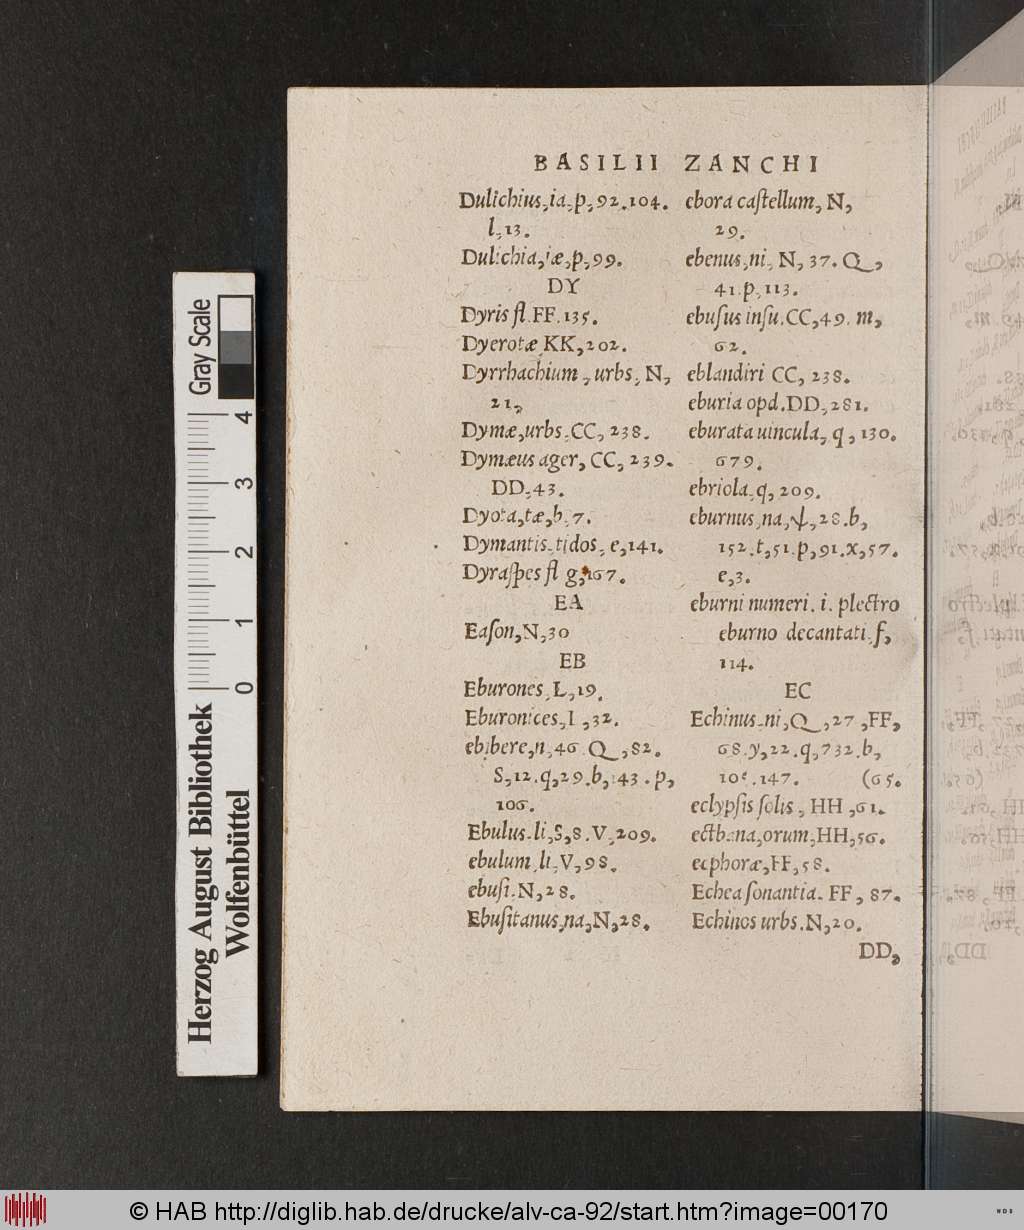 BASILII ZANCHI
Dulichius, ia, p, 92. 104.
l, 13.
Dulichia, iæ, p, 99.
DY
Dyris fl. FF. 135.
Dyerotæ, KK, 202.
Dyrrhachium, urbs, N,
21,
Dymæ, urbs, CC, 238.
Dymæus ager, CC, 239.
DD, 43.
Dyota, tæ, b, 7.
Dymantis, tidos, e, 141.
Dyraſpes fl g, 167.
EA
Eaſon, N, 30
EB
Eburones, L, 19.
Eburonices, L, 32.
ebibere, n, 46. Q, 82.
S, 12. q, 29. b, 143. p,
106.
Ebulus, li, S, 8. V, 209.
ebulum, li, V, 98.
ebuſi. N, 28.
Ebuſitanus, na, N, 28.
ebora caſtellum, N,
29.
ebenus, ni, N, 37. Q,
41. p, 113.
ebuſus inſu. CC, 49. m,
62.
eblandiri CC, 238.
eburia opd. DD, 281.
eburata uincula, q, 130.
679.
ebriola, q, 209.
eburnus, na, ψ, 28. b,
152. t, 51. p, 91. x, 57.
e, 3.
eburni numeri. i. plectro
eburno decantati. f,
114.
EC
Echinus, ni, Q, 27, FF,
68. y, 22. q, 732. b,
147. (65.
eclypſis ſolis, HH, 61.
ectbana, orum, HH, 56.
ecphoræ, FF, 58.
Echea ſonantia. FF, 87.
Echinos urbs. N, 20.
DD,
Gray Scale
4
3
2
1
0
Herzog August Bibliothek
Wolfenbüttel
© HAB http://diglib.hab.de/drucke/alv-ca-92/start.htm?image=00170